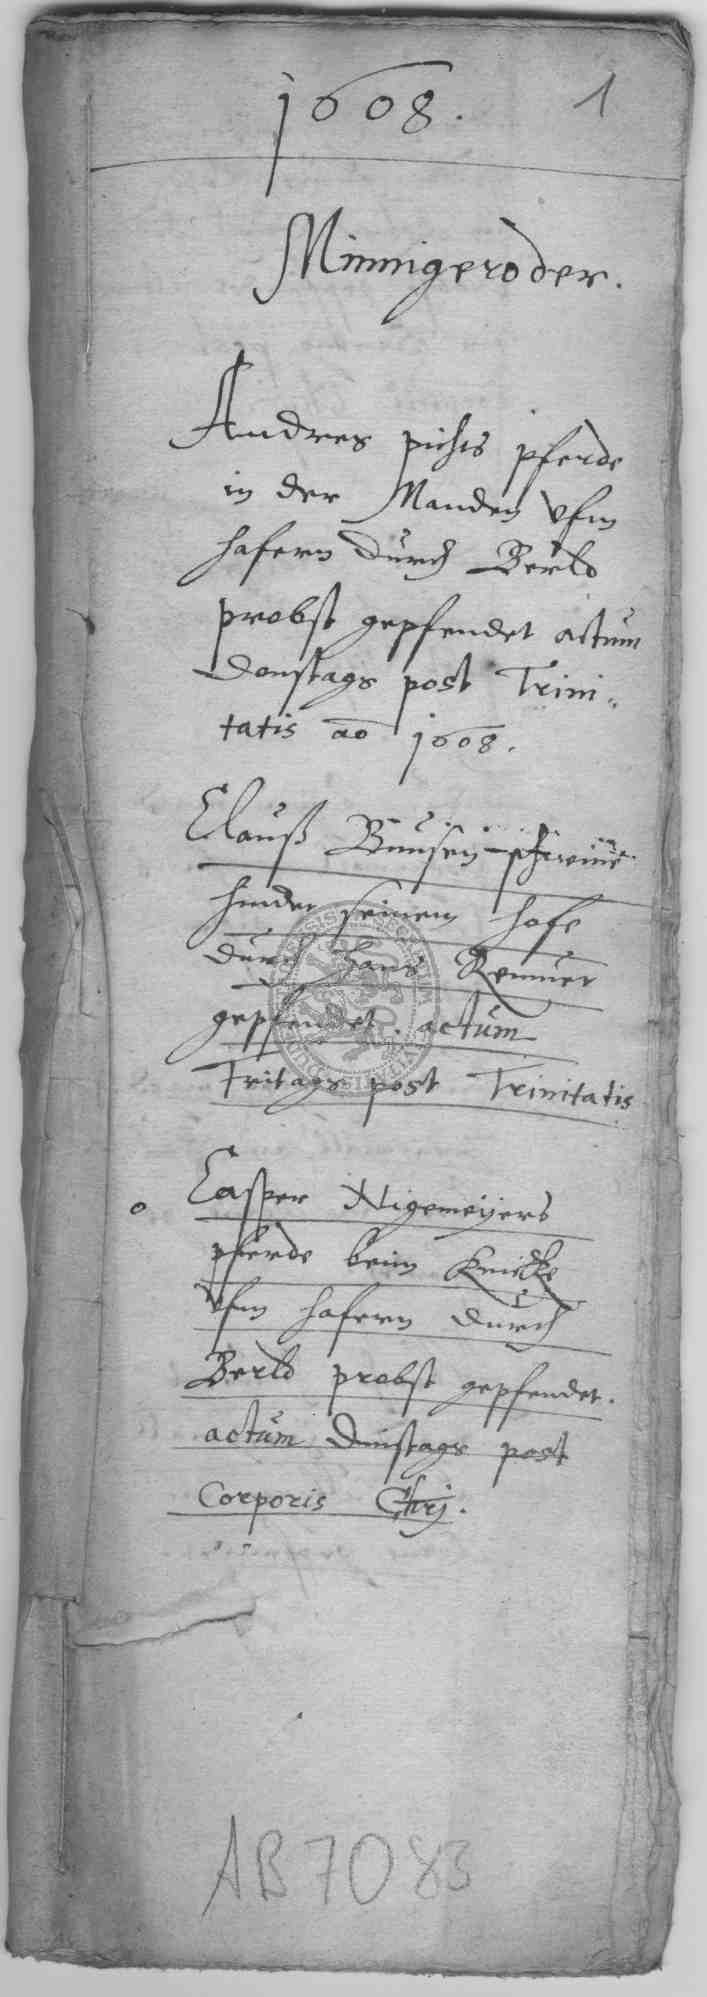 1608. 1
Minnigeroder.
Andres pichts pferde
in der Manden vfm
hafern durch Berld
probst gepfendet actum
Donstags post Trini-
tatis ao 1608.
Clauß Bunsen schweine
hinder seinem hofe
durch Hans
gepfendet. actum
Fritags post Trinitatis
Casper Nigemeyers
pferde beim Knicke
vfm hafern durch
Berld probst gepfendet.
actum Dinstags post
Corporis Chrj.
AB 7083